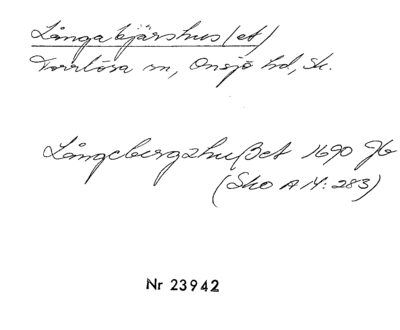 Långabjärshus(et)
Torrlösa sn, Onsjö hd, Sk.
Långebergzhußet 1690 Jb
(Sko A IV: 283)
Nr 23942